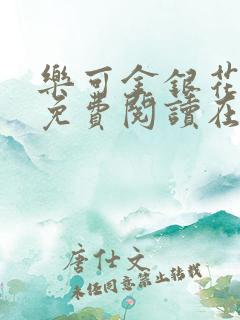 樂可金銀花
免費閱讀在
唐仕文
未经同意禁止转载